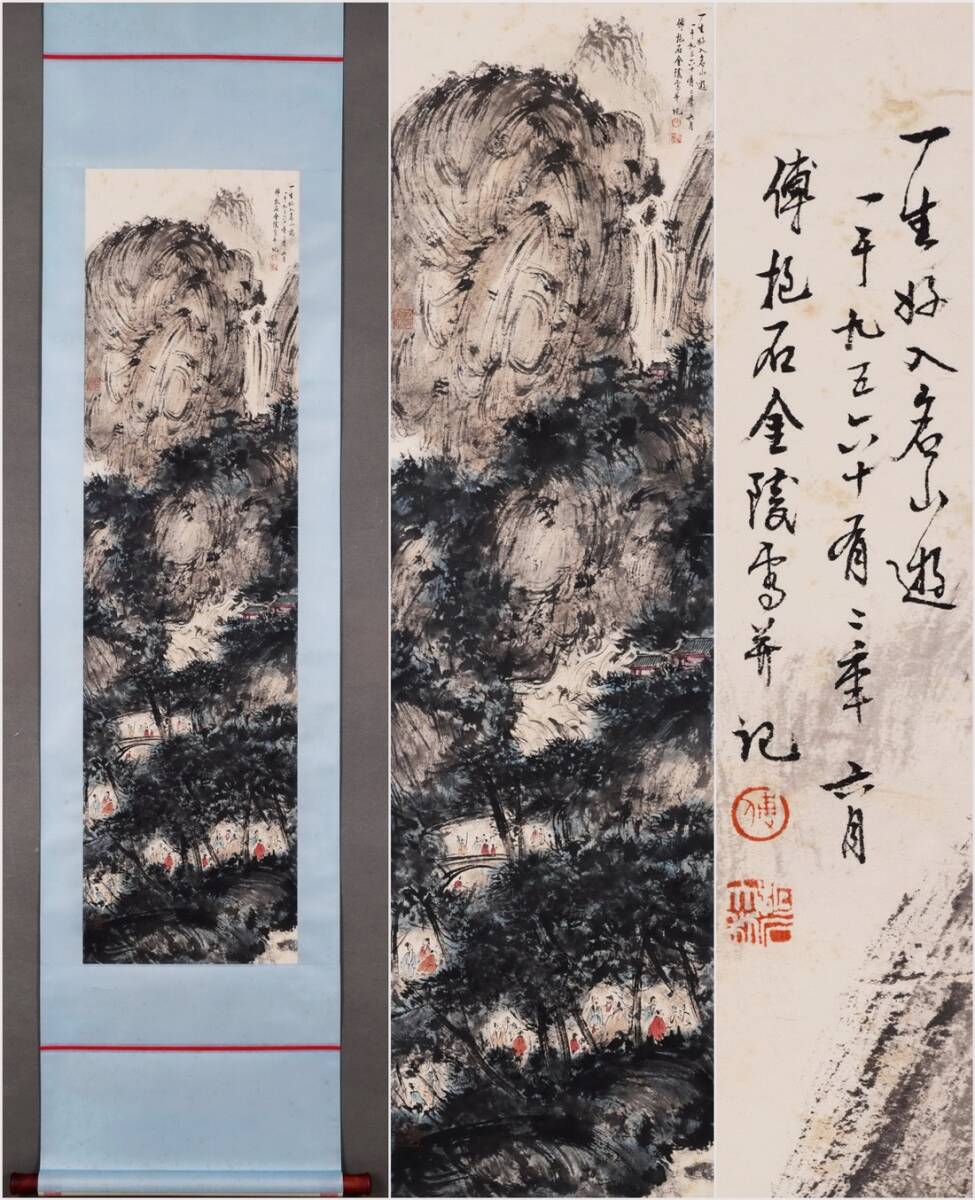 一生好入名山遊
一千九百六十有二年六月
傅抱石金陵寫并記
傅